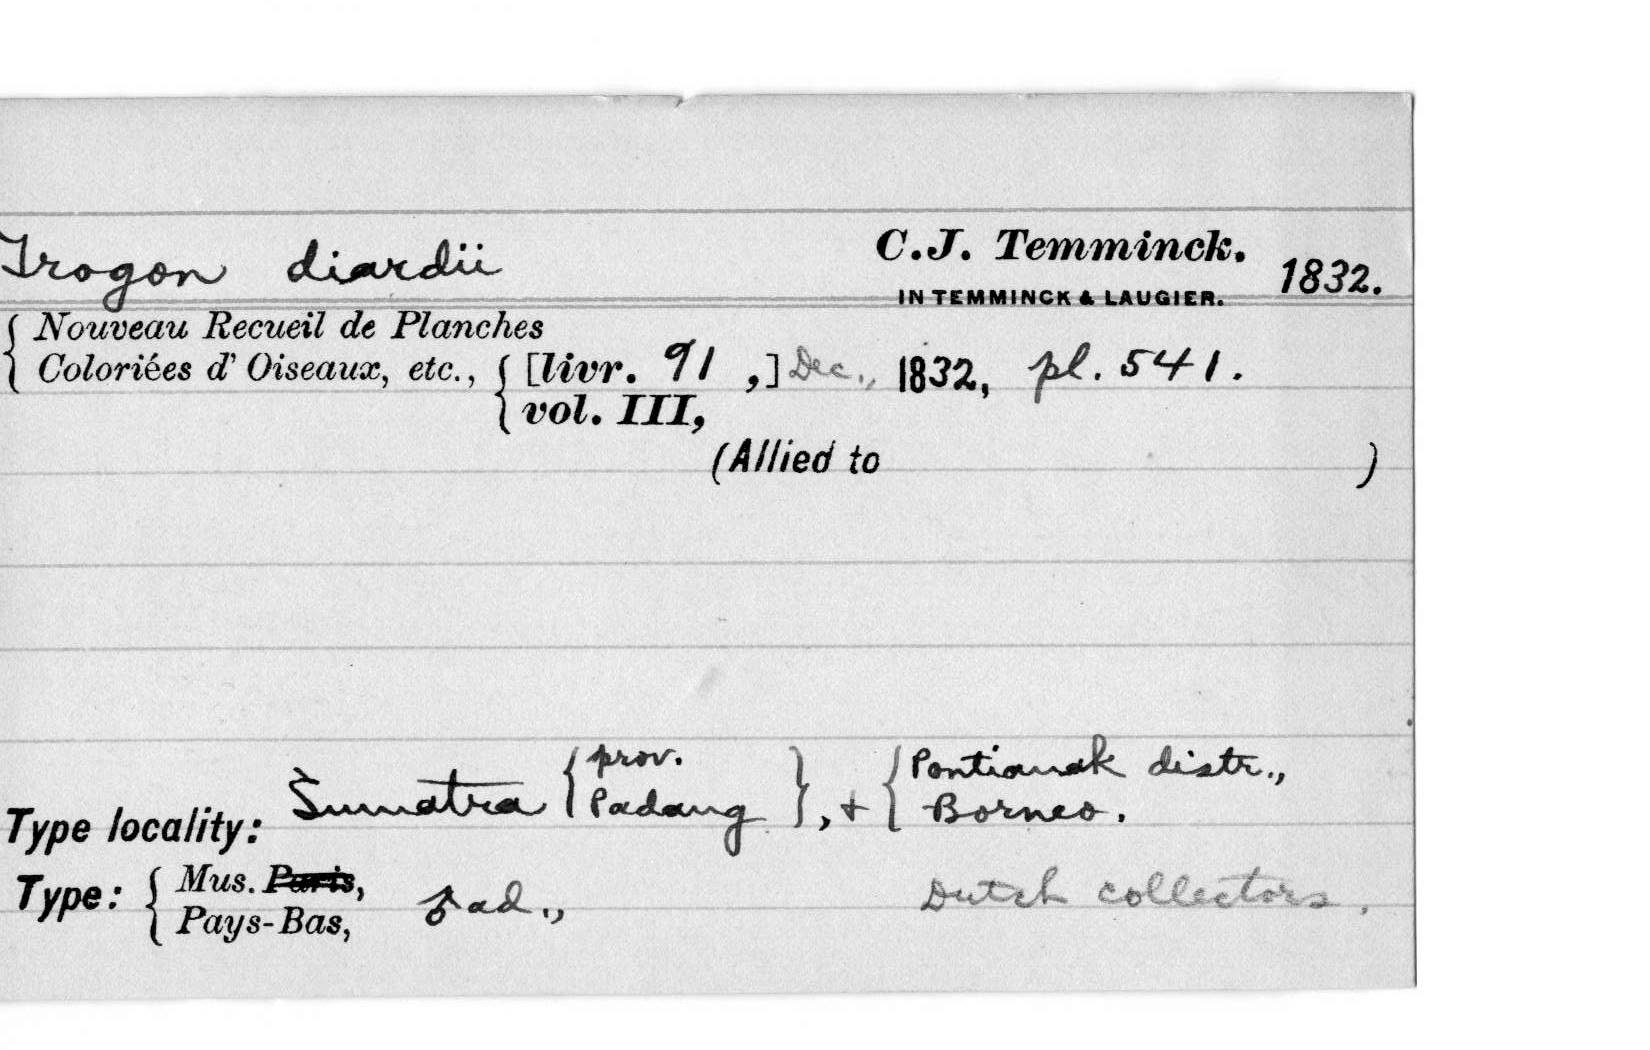 Trogon diardii C.J. Temminck. 1832.
IN TEMMINCK & LAUGIER.
Nouveau Recueil de Planches
Coloriées d' Oiseaux, etc., [livr. 91 ,] Dec., 1832, pl. 541.
vol. III,
(Allied to )
prov. Pontianak distr.,
Type locality: Sumatra Padang , + Borneo.
Type: Mus. Paris, ♂ ad., Dutch collectors.
Pays-Bas,